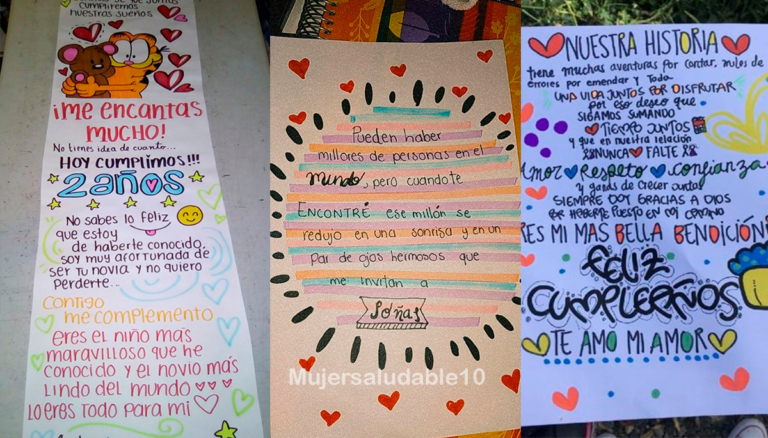 cumpliremos
nuestras sueños
¡ME encantas
MUCHO!
No tienes idea de cuanto...
HOY CUMPLIMOS!!!
2 años
No sabes lo feliz
que estoy
de haberte conocido,
soy muy afortunada de
ser tu novia y no quiero
perderte...
Contigo
me complemento
eres el niño más
maravilloso que he
conocido y el novio más
lindo del mundo
lo eres todo para mi
Pueden haber
millones de personas en el
mundo, pero cuando te
ENCONTRÉ ese millón se
redujo en una sonrisa y en un
par de ojos hermosos que
me invitan a
Soñar
Mujersaludable10
NUESTRA HISTORIA
tiene muchas aventuras por contar, miles de
errores por emendar y toda
UNA VIDA JUNTOS POR DISFRUTAR
por eso deseo que
SIGAMOS SUMANDO
TIEMPO JUNTOS
y que en nuestra relación
NUNCA FALTE
Amor Respeto confianza
y ganas de crecer juntos
SIEMPRE DOY GRACIAS A DIOS
POR HABERTE PUESTO EN MI CAMINO
ERES MI MAS BELLA BENDICIÓN
FELIZ
CUMPLEAÑOS
TE AMO MI AMOR